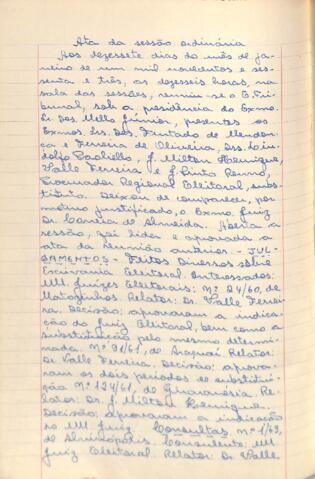 Ata da sessão ordinária
Aos dezessete dias do mês de ja-
neiro de um mil novecentos e ses-
senta e três, às dezesseis horas, na
sala das sessões, reuniu-se o E. Tri-
bunal, sob a presidência do Exmo.
Sr. Des. Mello Júnior, presentes os
Exmos. Srs. Des. Furtado de Mendon-
ça e Ferreira de Oliveira, Drs. Lin-
dolfo Paoliello, J. Milton Henrique,
Valle Ferreira e J. Pinto Renno,
Procurador Regional Eleitoral, subs-
tituto. Deixou de comparecer, por
motivo justificado, o Exmo. Juiz
Dr. Corrêa de Almeida. Aberta a
sessão, foi lida e aprovada a
ata da reunião anterior. - JUL-
GAMENTOS - Feitos Diversos sôbre
Escrivania Eleitoral. Interessados:
MM. Juízes Eleitorais: Nº 24/60, de
Matozinhos. Relator: Dr. Valle Ferrei-
ra. Decisão: aprovaram a indica-
ção do Juiz Eleitoral, bem como a
substituição pelo mesmo determi-
nada. Nº 91/61, de Araçuaí. Relator:
Dr. Valle Ferreira. Decisão: aprova-
ram os dois períodos de substitui-
ção. Nº 124/61, de Guaranésia. Re-
lator: Dr. J. Milton Henrique.
Decisão: aprovaram a indicação
do MM. Juiz. Consultas Nº 1/63,
de Consulente: MM.
Juiz Eleitoral. Relator: Dr. Valle